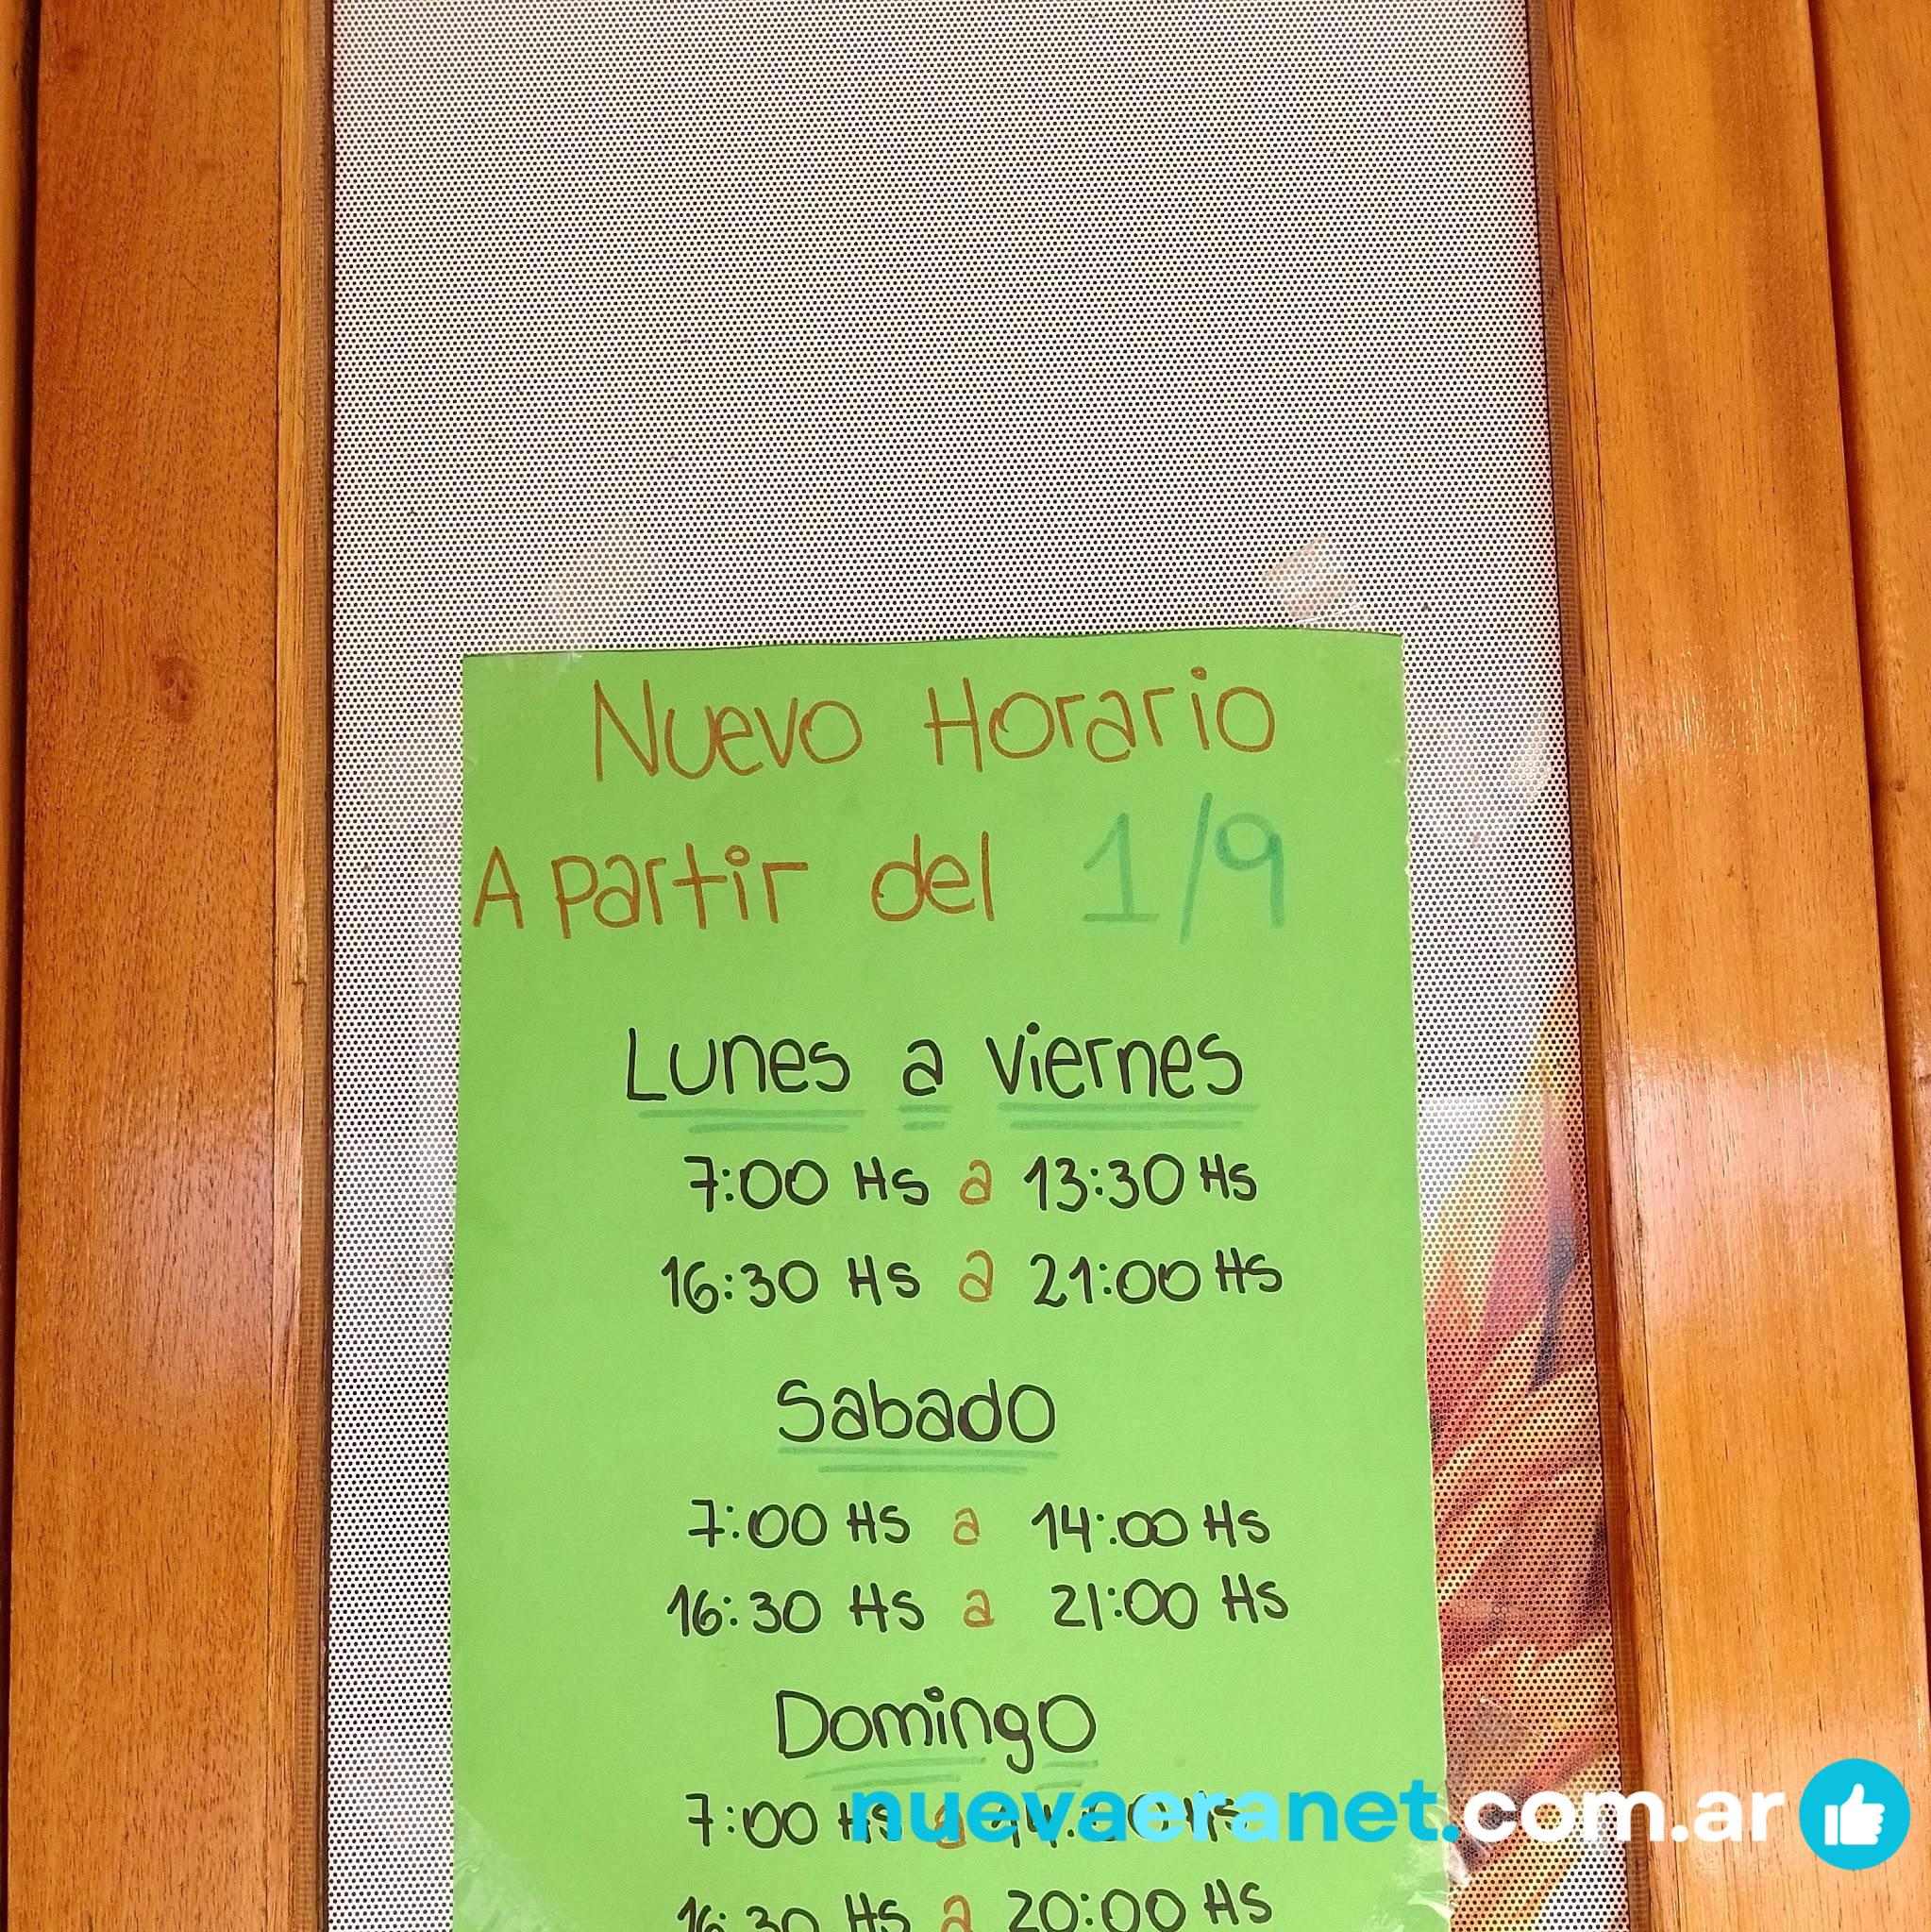 Nuevo Horario
A partir del 1/9
Lunes a viernes
7:00 Hs a 13:30 Hs
16:30 Hs a 21:00 Hs
Sabado
7:00 Hs a 14:00 Hs
16:30 Hs a 21:00 Hs
Domingo
7:00 Hs a 14:00 Hs
nuevaeranet.com.ar
16:30 Hs a 20:00 Hs